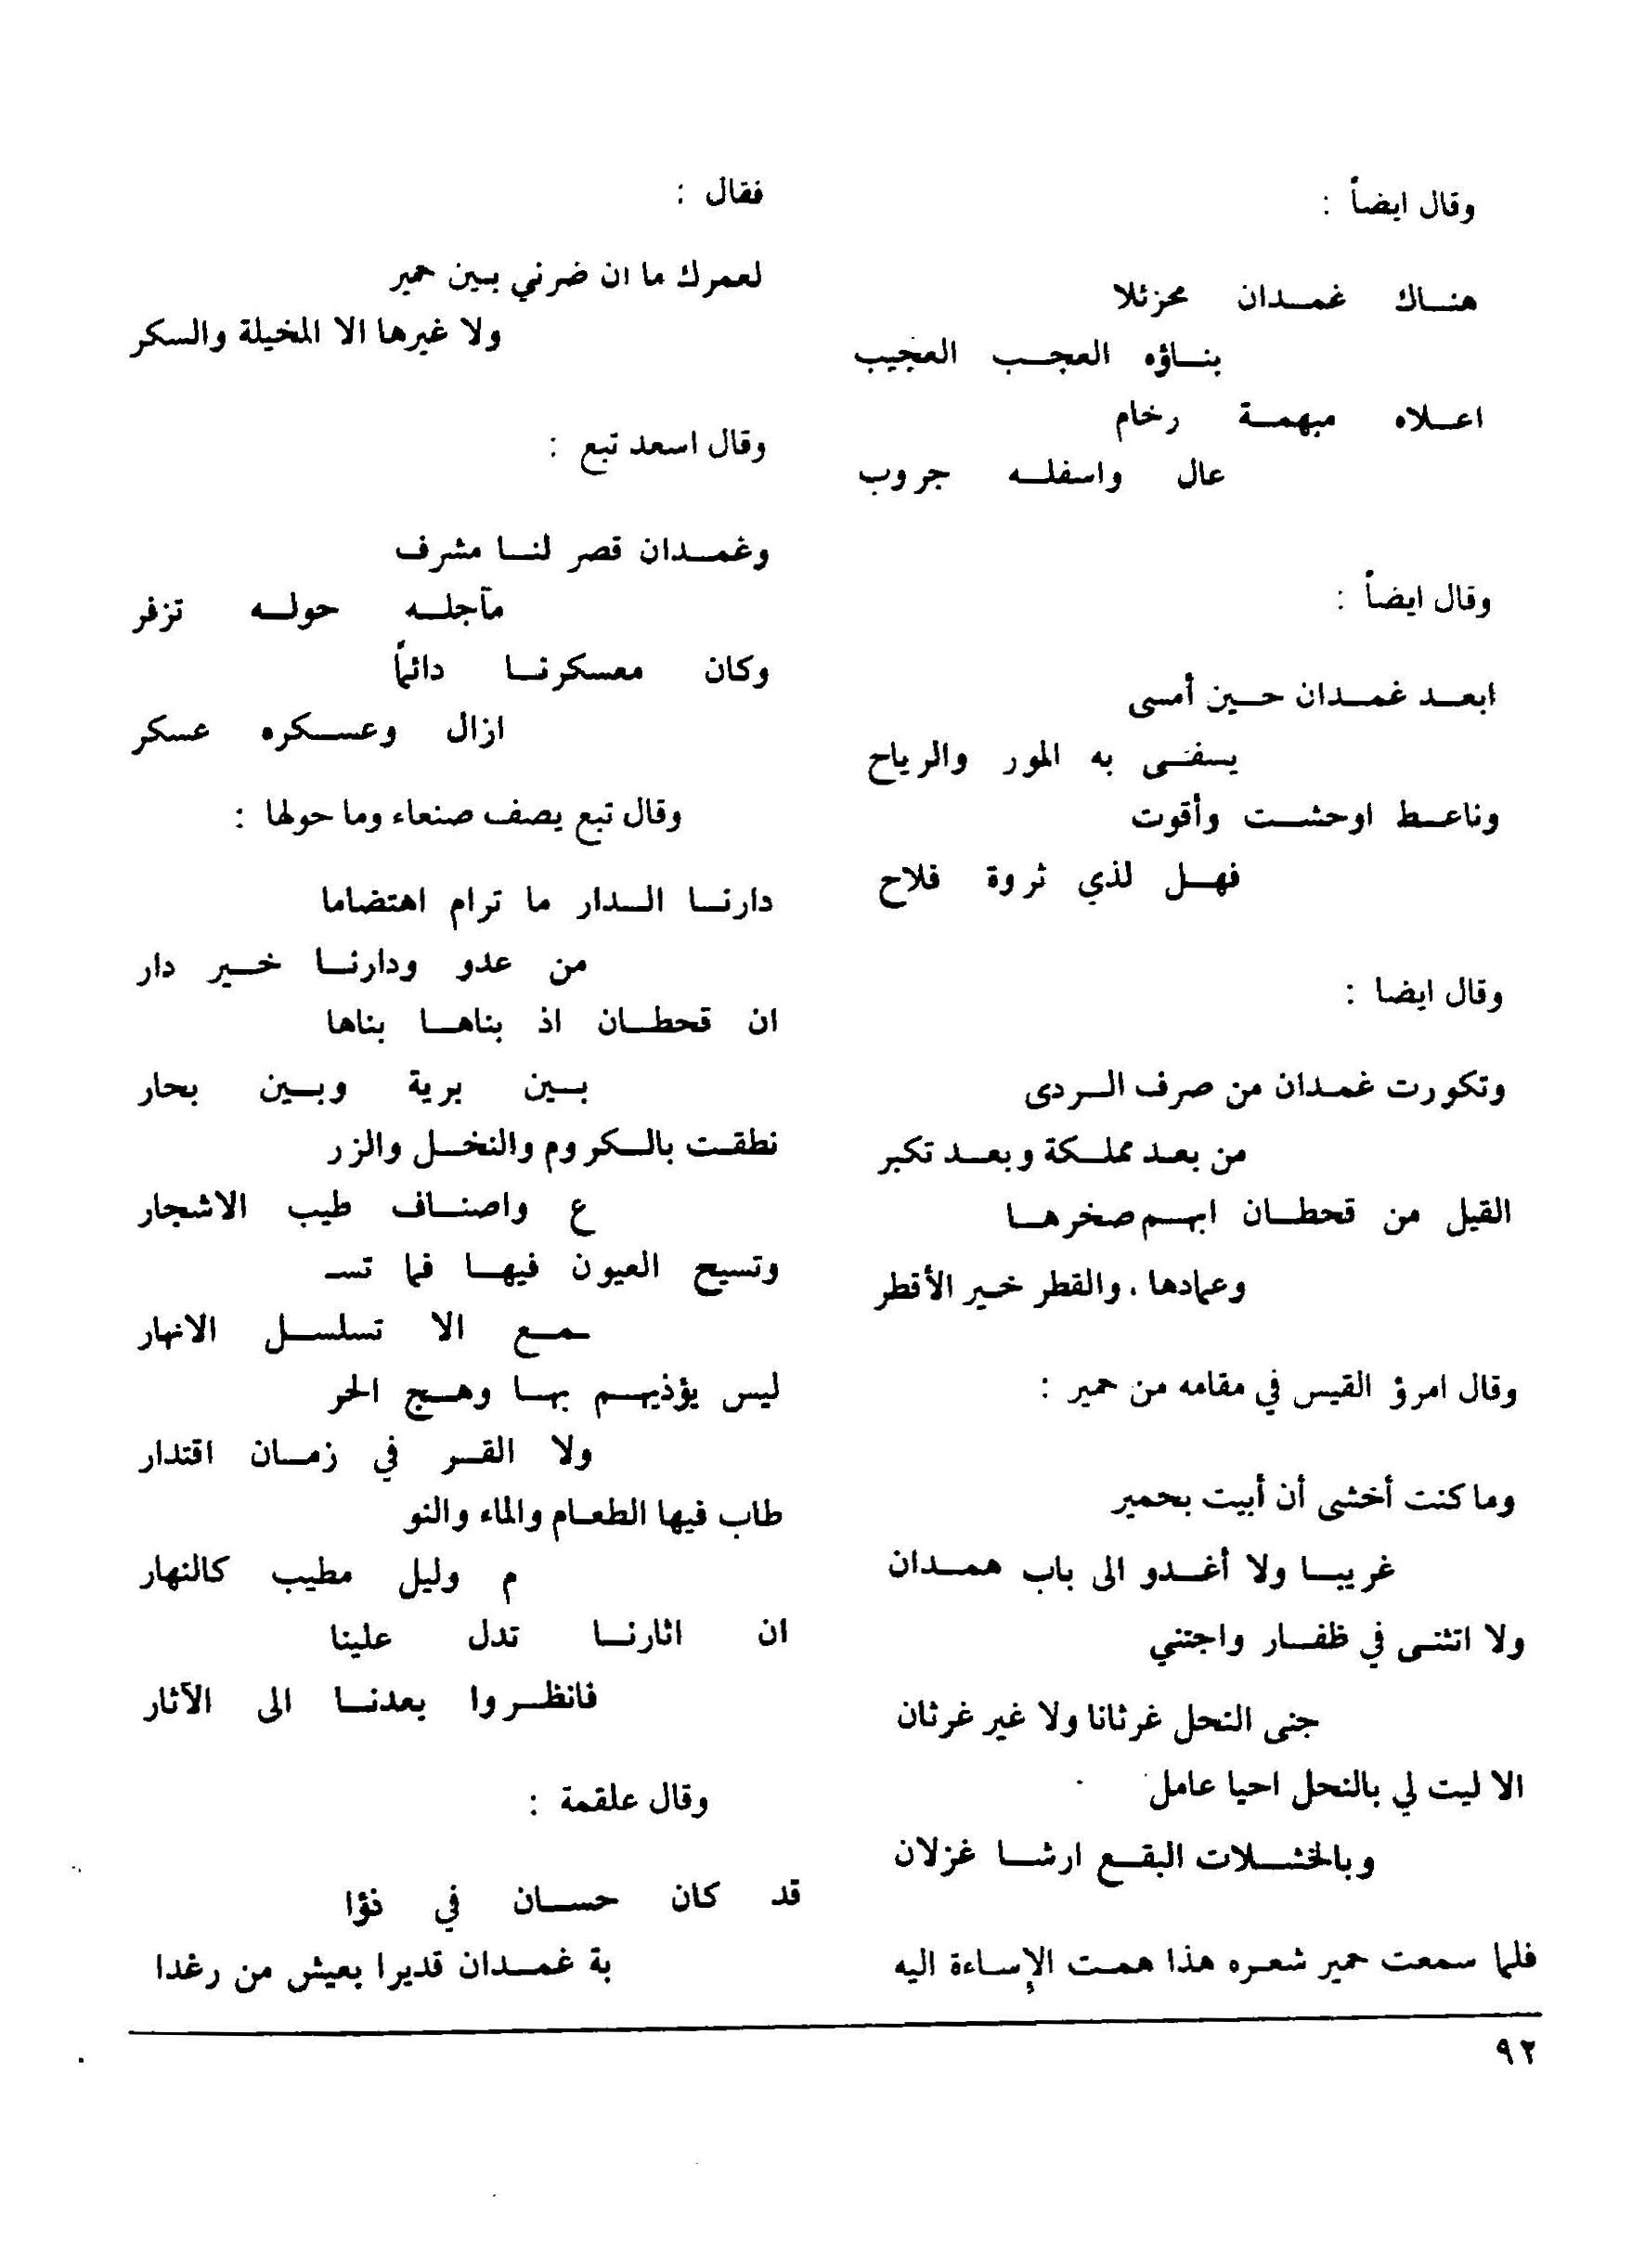 وقال ايضاً :
هنـاك غمـدان محزئلا
بنـاؤه العجـب العجيب
اعـلاه مبهمـة رخام
عال واسفلـه جروب
وقال ايضاً :
ابعـد غمـدان حـين أمسى
يسفـى به المور والرياح
وناعـط اوحشـت وأقوت
فهـل لذي ثروة فلاح
وقال ايضا :
وتكورت غمدان من صرف الـردى
من بعد مملـكة وبعـد تكبر
القيل من قحطـان ابهـم صخرهـا
وعمادها . والقطر خـير الأقطر
وقال امرؤ القيس في مقامه من حمير :
وما كنت أخشى أن أبيت بحمير
غريبـا ولا أغـدو الى باب همـدان
ولا اتثنـى في ظفـار واجتني
جنى النحل غرثانا ولا غير غرثان
الا ليت لي بالنحل احيا عامل
وبالخشـلات البقـع ارشـا غزلان
فلما سمعت حمير شعره هذا همت الإساءة اليه
فقال :
لعمرك ما ان ضرني بـين حمير
ولا غيرها الا المخيلة والسكر
وقال اسعد تبع :
وغمـدان قصر لنـا مشرف
مآجلـه حولـه تزفر
وكان معسكرنـا دائماً
ازال وعسـكره عسكر
وقال تبع يصف صنعاء وما حولها :
دارنـا الـدار ما ترام اهتضاما
من عدو ودارنـا خـير دار
ان قحطـان اذ بناهـا بناها
بـين برية وبـين بحار
نطقـت بالـكروم والنخـل والزر
ع واصنـاف طيب الاشجار
وتسيح العيون فيهـا فما تسـ
ـمـع الا تسلسـل الانهار
ليس يؤذيهـم بهـا وهـج الحر
ولا القـر في زمـان اقتدار
طاب فيها الطعـام والماء والنو
م وليل مطيب كالنهار
ان اثارنـا تدل علينا
فانظـروا بعدنـا الى الآثار
وقال علقمة :
قد كان حسـان في ذؤا
بة غمـدان قديرا بعيش من رغدا
٩٢